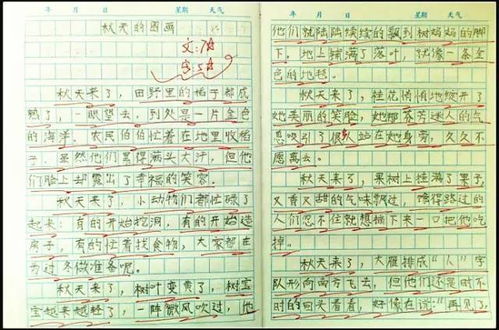 年 月 日 星期 天气
秋天的图画
文:7☆
字:5☆
秋天来了,田野里的稻子都成
熟了,一眼望去,到处是一片金色
的海洋。农民伯伯忙着在地里收稻
子。虽然他们累得满头大汗,但他
们脸上却露出了幸福的笑容。
秋天来了,小动物们都忙碌了
起来:有的开始挖洞,有的开始造
房子,有的忙着找食物,大家都在
为过冬做准备呢。
秋天来了,树叶变黄了,树宝
宝起来越轻了,一阵微风吹过,他
年 月 日 星期 天气
他们就陆陆续续的飘到树妈妈的脚
下。地上铺满了落叶,就像一条金
色的地毯。
秋天来了,桂花悄悄地绽开了
她美丽的笑脸,她那芬芳迷人的气
息吸引了很多人站在她身旁,久久不
愿离去。
秋天来了,果树上挂满了果子,
又香又甜的气味飘过,馋得路过的
人们忍不住就想摘下来一口把他吃
掉。
秋天来了,大雁排成“人”字
队形向南方飞去,但他们还是时不
时的回头看看,好像在说:“再见了,